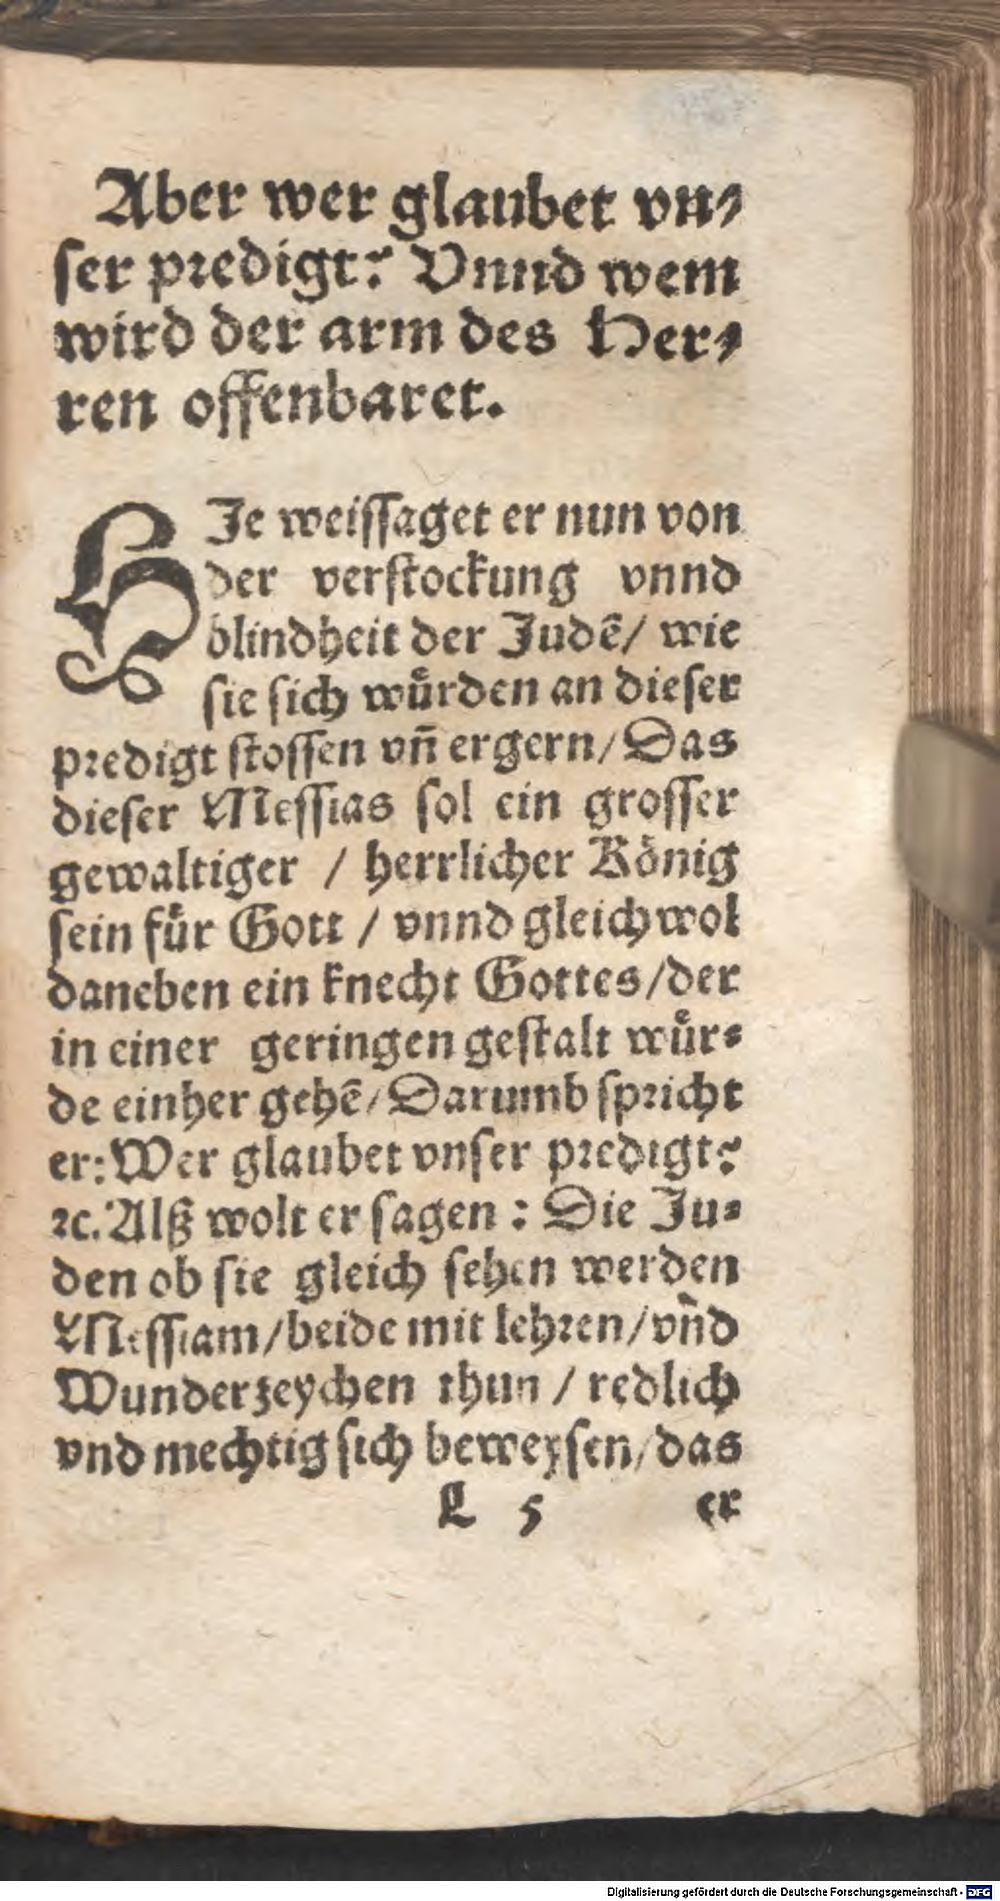 Aber wer glaubet vn⸗
ſer predigt? Vnnd wem
wird der arm des Her⸗
ren offenbaret.
HJe weiſſaget er nun von
der verſtockung vnnd
blindheit der Judẽ/ wie
ſie ſich wuͤrden an dieſer
predigt ſtoſſen vñ ergern/ Das
dieſer Meſſias ſol ein groſſer
gewaltiger / herrlicher Koͤnig
ſein fuͤr Gott / vnnd gleich wol
daneben ein knecht Gottes/der
in einer geringen geſtalt wuͤr⸗
de einher gehẽ/ Darumb ſpricht
er: Wer glaubet vnſer predigt?
ꝛc. Alß wolt er ſagen : Die Ju⸗
den ob ſie gleich ſehen werden
Meſſiam/beide mit lehren/vñd
Wunderzeychen thun / redlich
vnd mechtig ſich beweyſen/das
L 5 er
Digitalisierung gefördert durch die Deutsche Forschungsgemeinschaft - DFG